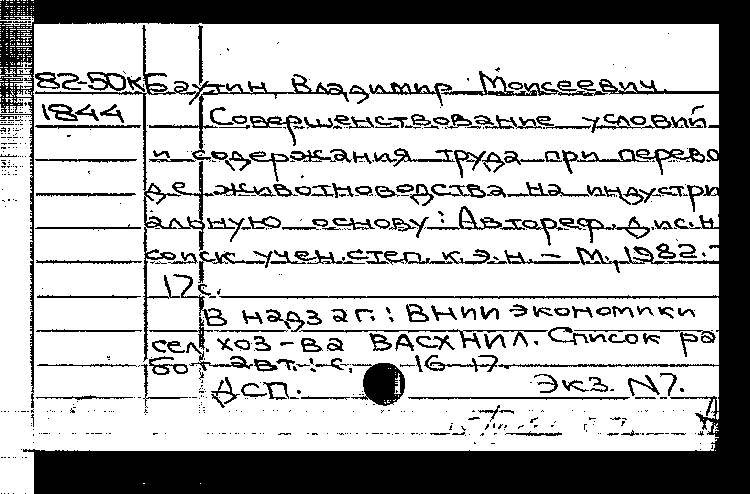 82-50К Баутин, Владимир Моисеевич.
1844 Совершенствование условий
и содержания труда при перево
де животноводства на индустри
альную основу: Автореф. дис. н
соиск учен. степ. к. э. н. – М., 1982. –
17 с.
В надзаг.: ВНИИ экономики
сел. хоз-ва ВАСХНИЛ. Список ра
бот авт.: с. 16-17.
ДСП. Экз. N7.